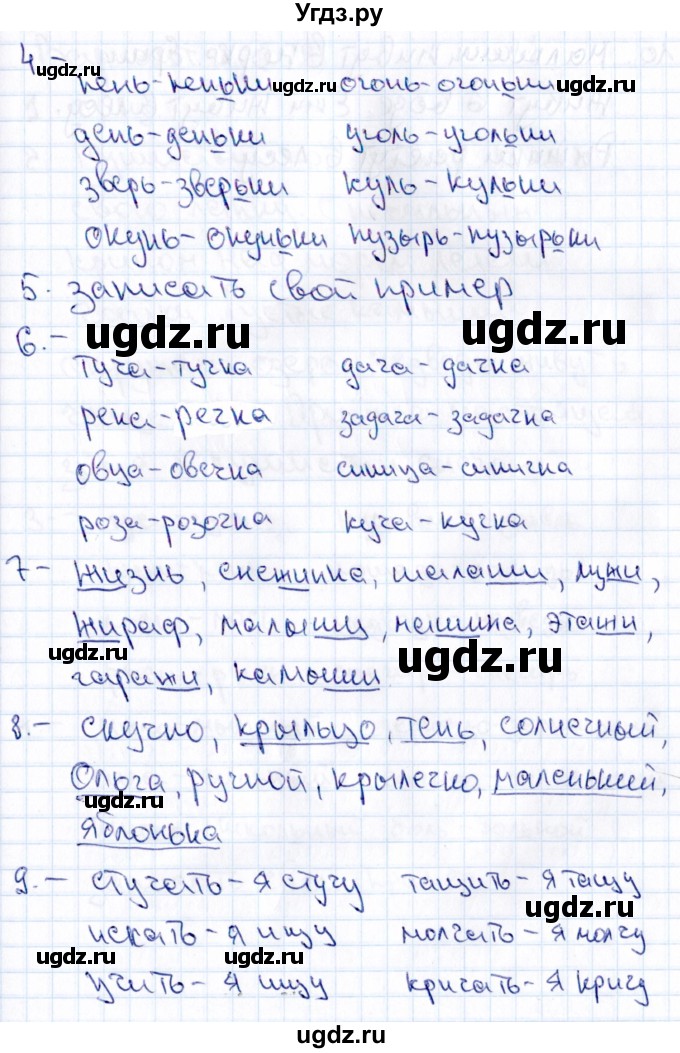 Угдз.ру
4.– пень-пеньки огонь-огоньки
ugdz.ru ugdz.ru ugdz.ru
день-деньки уголь-угольки
зверь-зверьки куль-кульки
окунь-окуньки пузырь-пузырьки
5. записать свой пример
6.– ugdz.ru ugdz.ru
туча-тучка дача-дачка
река-речка задача-задачка
овца-овечка синица-синичка
роза-розочка куча-кучка
7– жизнь, снежинка, шалаши, лужи,
жираф, малыши, машина, этажи,
ugdz.ru ugdz.ru
гаражи, камыши
8.– скучно, крыльцо, тень, солнечный,
Ольга, ручной, крылечко, маленький,
ugdz.ru
яблонька
9.– стучать-я стучу тащить-я тащу
искать-я ищу молчать-я молчу
ugdz.ru ugdz.ru ugdz.ru
учить-я ищу кричать-я кричу
ugdz.ru